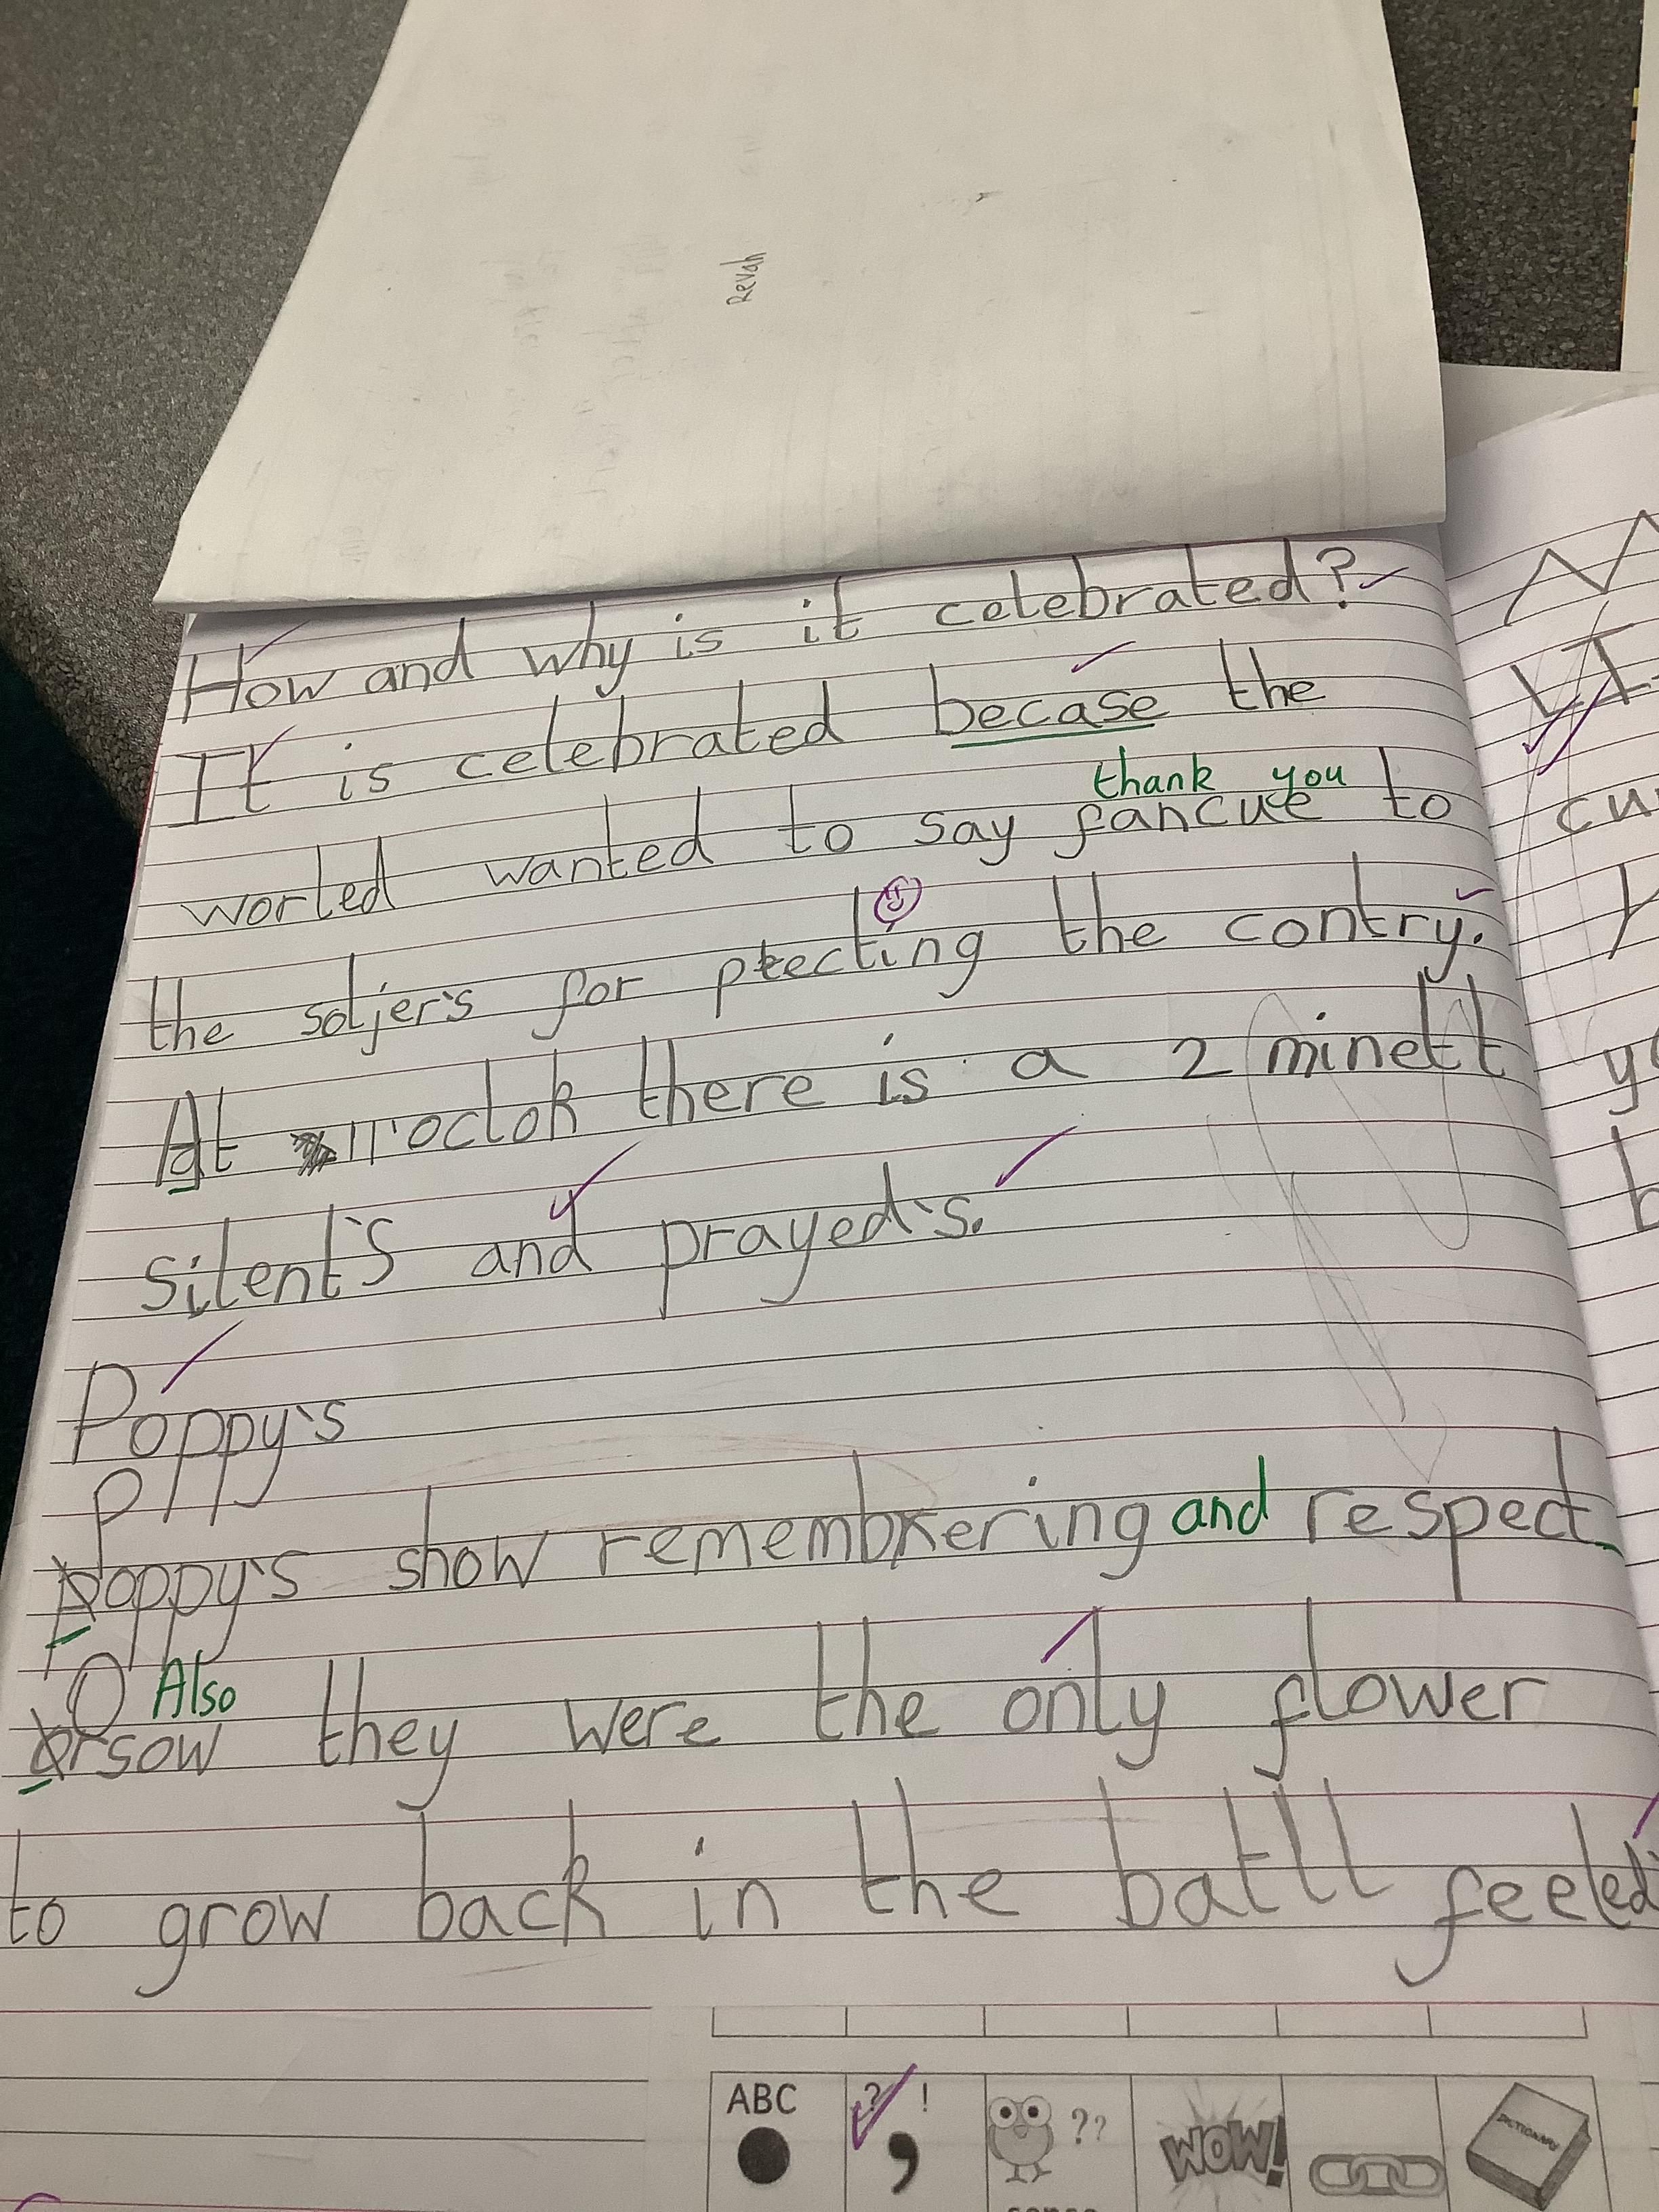 Revah
How and why is it celebrated?
It is celebrated becase the
thank you
worled wanted to say fancue to
the soljer's for ptecting the contry.
At 11 oclok there is a 2 minett
silent's and prayed's.
Poppy's
P
poppy's show remembering and respect
O Also
orsow they were the only flower
to grow back in the batll feeled
ABC ? ! , ?? WOW! DICTIONARY